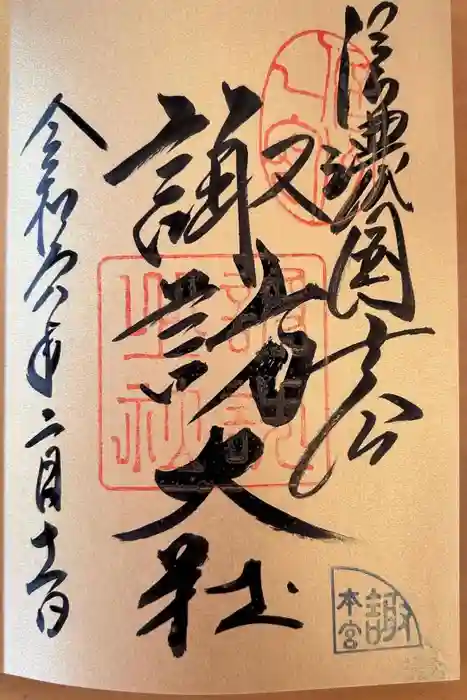 信濃國一之宮
諏訪大社
令和六年二月十一日
諏
本宮